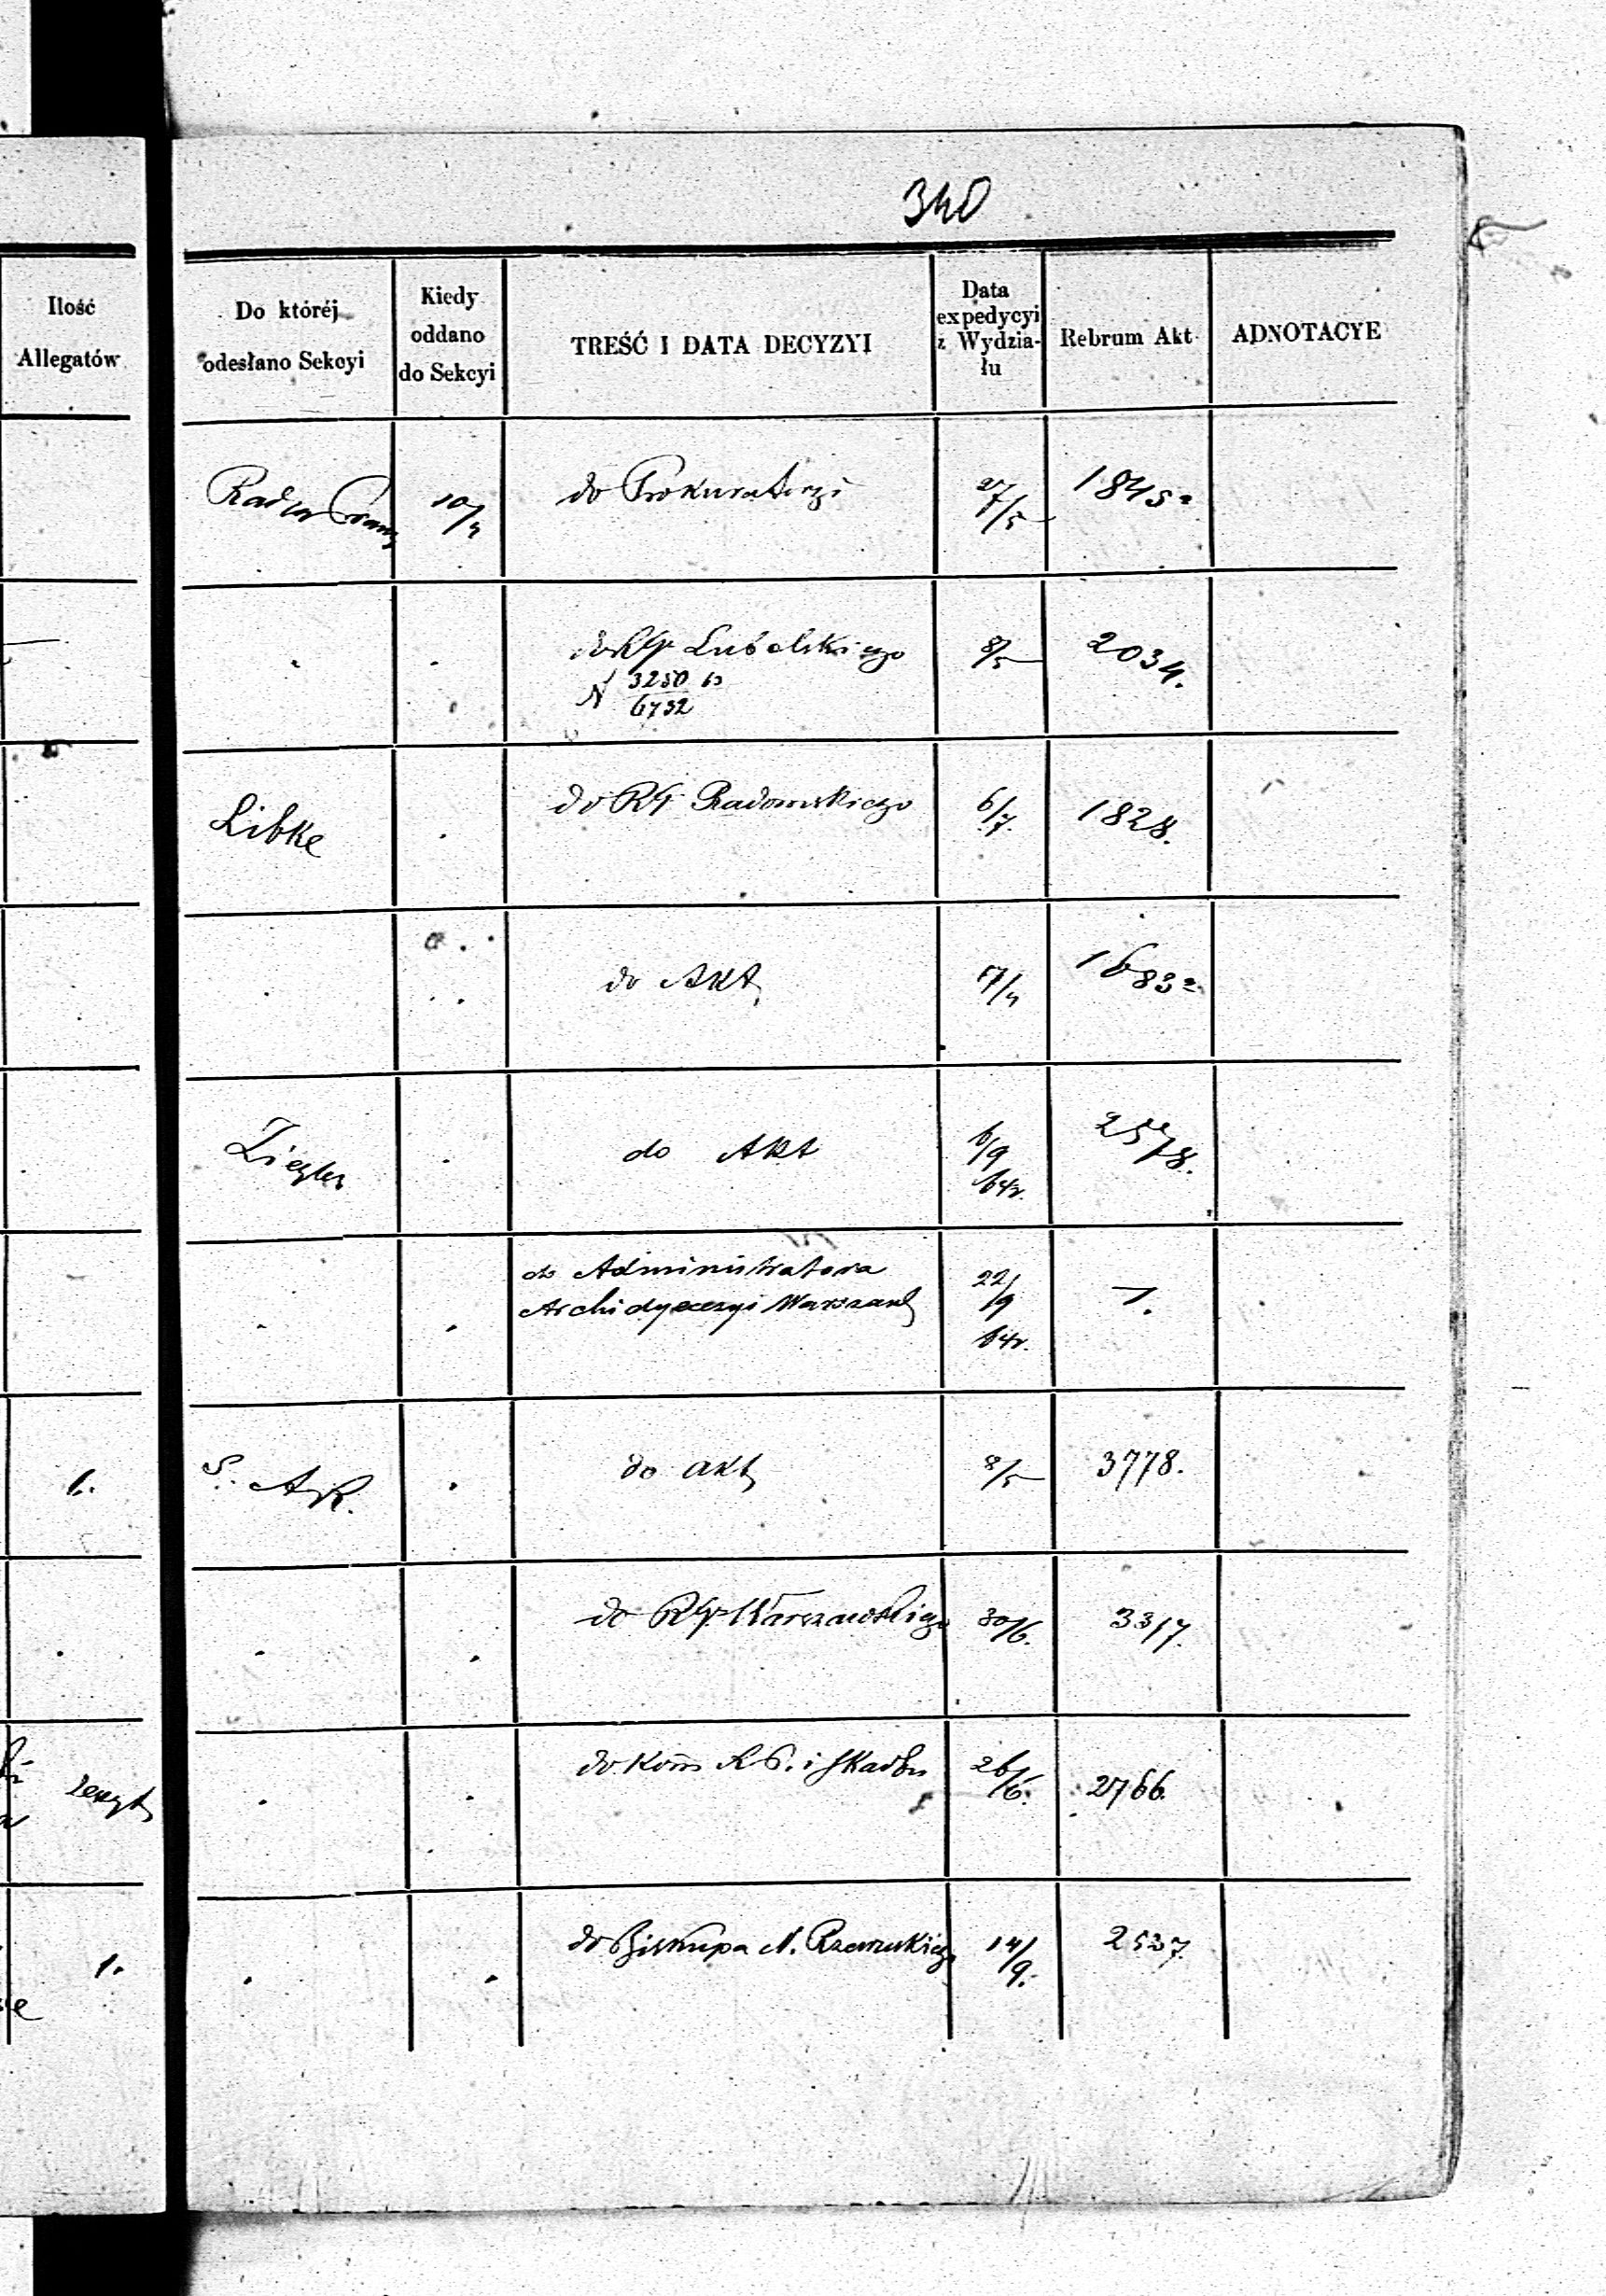 340
Ilość
Allegatów
Do któréj
odesłano Sekcyi
Kiedy
oddano
do Sekcyi
TREŚĆ I DATA DECYZYI
Data
expedycyi
z Wydzia-
łu
Rebrum Akt
ADNOTACYE
Radca 10/4 do Prokuratoryi 27/5 1845a
do RG Lubelskiego 8/5 2034.
N 3250
6732
Libke do RG Radomskiego 6/7. 1828.
do Akt 17/4 1683a
Ziegler do Akt 6/9 2578.
64r.
do Administratora 22/9
Archidyecezyi Warszaws 64r.
1. S. AR. do akt 8/5 3778.
do RG Warszawskiego 30/6. 3317.
zeszyt do Kom R P. i Skarbu 26/6. 2766.
1. do Biskupa N. Rzewuskiego 14/9. 2537.